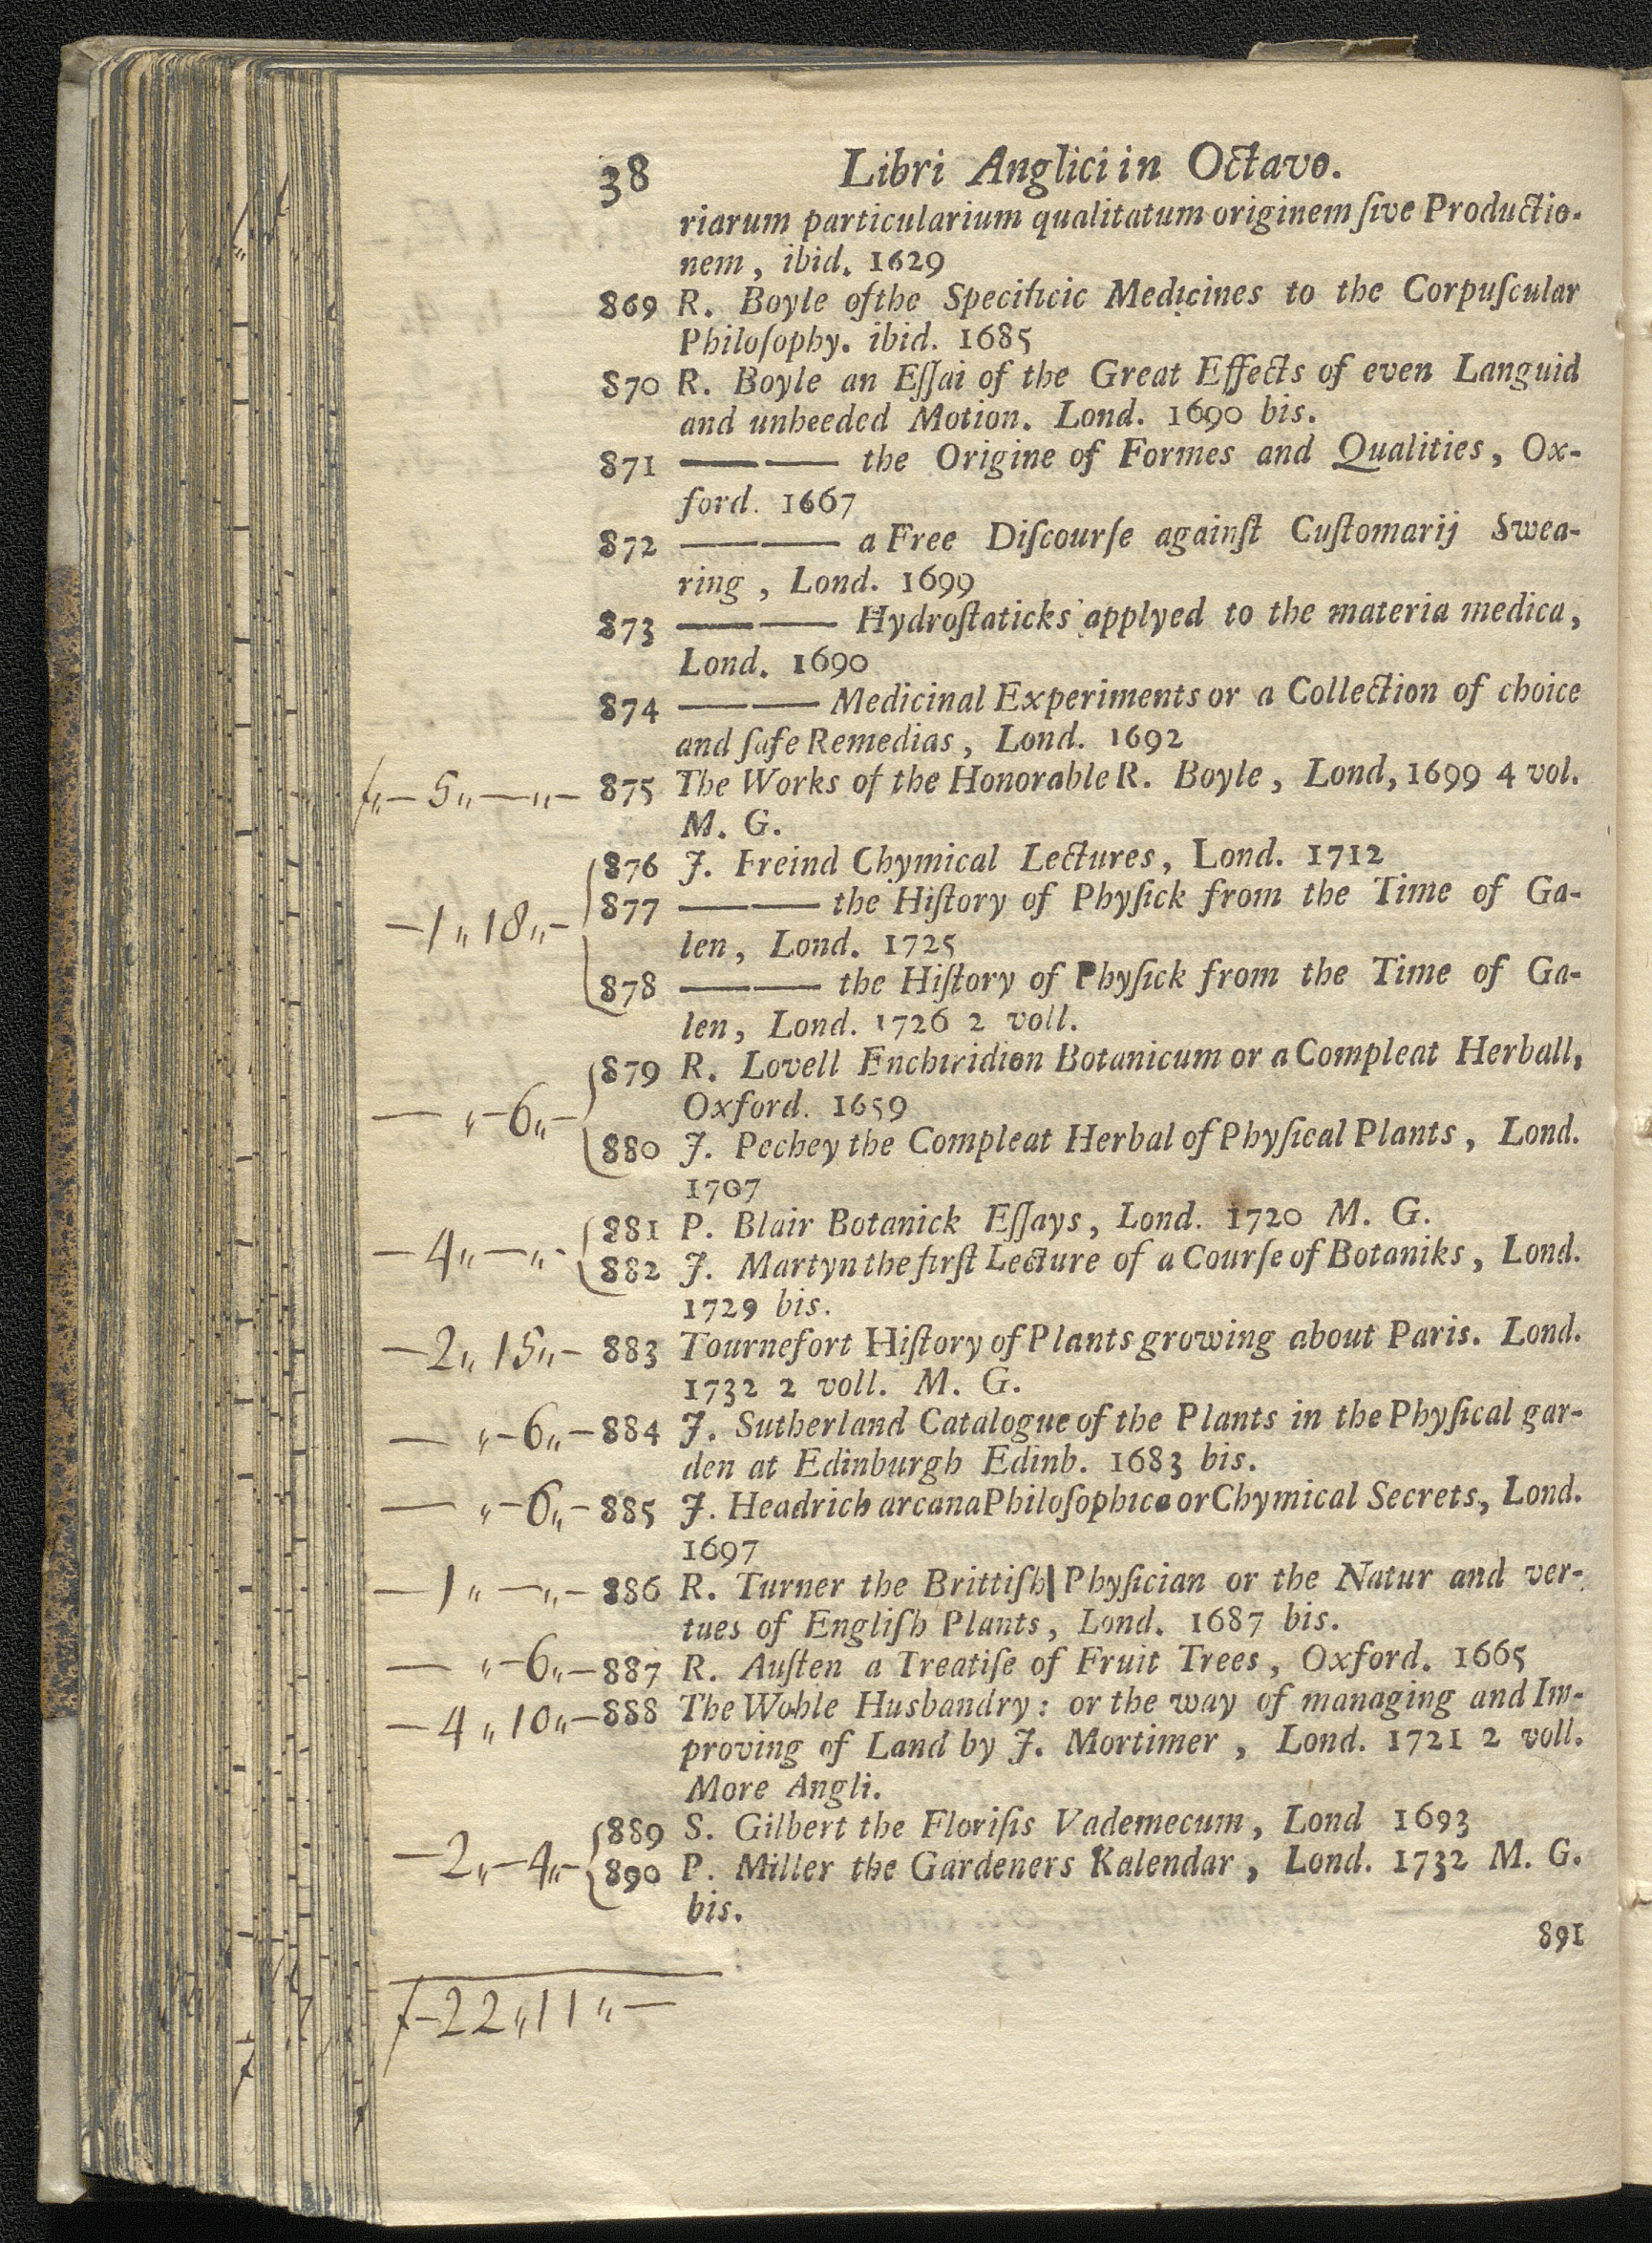 38 Libri Anglici in Octavo.
riarum particularium qualitatum originem ſive Productio-
nem, ibid. 1629
869 R. Boyle ofthe Specificic Medicines to the Corpuſcular
Philoſophy. ibid. 1685
870 R. Boyle an Eſſai of the Great Effects of even Languid
and unheeded Motion. Lond. 1690 bis.
871 —— — the Origine of Formes and Qualities, Ox-
ford. 1667
872 —— — a Free Diſcourſe againſt Cuſtomarij Swea-
ring, Lond. 1699
873 —— — Hydroſtaticks applyed to the materia medica,
Lond. 1690
874 —— — Medicinal Experiments or a Collection of choice
and ſafe Remedias, Lond. 1692
f„— 5„—„— 875 The Works of the Honorable R. Boyle, Lond, 1699 4 vol.
M. G.
876 J. Freind Chymical Lectures, Lond. 1712
—1„18„— 877 —— — the Hiſtory of Phyſick from the Time of Ga-
len, Lond. 1725
878 —— — the Hiſtory of Phyſick from the Time of Ga-
len, Lond. 1726 2 voll.
879 R. Lovell Enchiridion Botanicum or a Compleat Herball,
— „—6„— Oxford. 1659
880 J. Pechey the Compleat Herbal of Phyſical Plants, Lond.
1707
881 P. Blair Botanick Eſſays, Lond. 1720 M. G.
—4„—„— 882 J. Martyn the firſt Lecture of a Courſe of Botaniks, Lond.
1729 bis.
—2„15„— 883 Tournefort Hiſtory of Plants growing about Paris. Lond.
1732 2 voll. M. G.
— „—6„— 884 J. Sutherland Catalogue of the Plants in the Phyſical gar-
den at Edinburgh Edinb. 1683 bis.
— „—6„— 885 J. Headrich arcana Philoſophica or Chymical Secrets, Lond.
1697
—1„—„— 886 R. Turner the Brittiſh| Phyſician or the Natur and ver-
tues of Engliſh Plants, Lond. 1687 bis.
— „—6„— 887 R. Auſten a Treatiſe of Fruit Trees, Oxford. 1665
—4„10„— 888 The Wohle Husbandry: or the way of managing and Im-
proving of Land by J. Mortimer, Lond. 1721 2 voll.
More Angli.
889 S. Gilbert the Floriſis Vademecum, Lond 1693
—2„—4„— 890 P. Miller the Gardeners Kalendar, Lond. 1732 M. G.
bis.
891
f—22„11„—